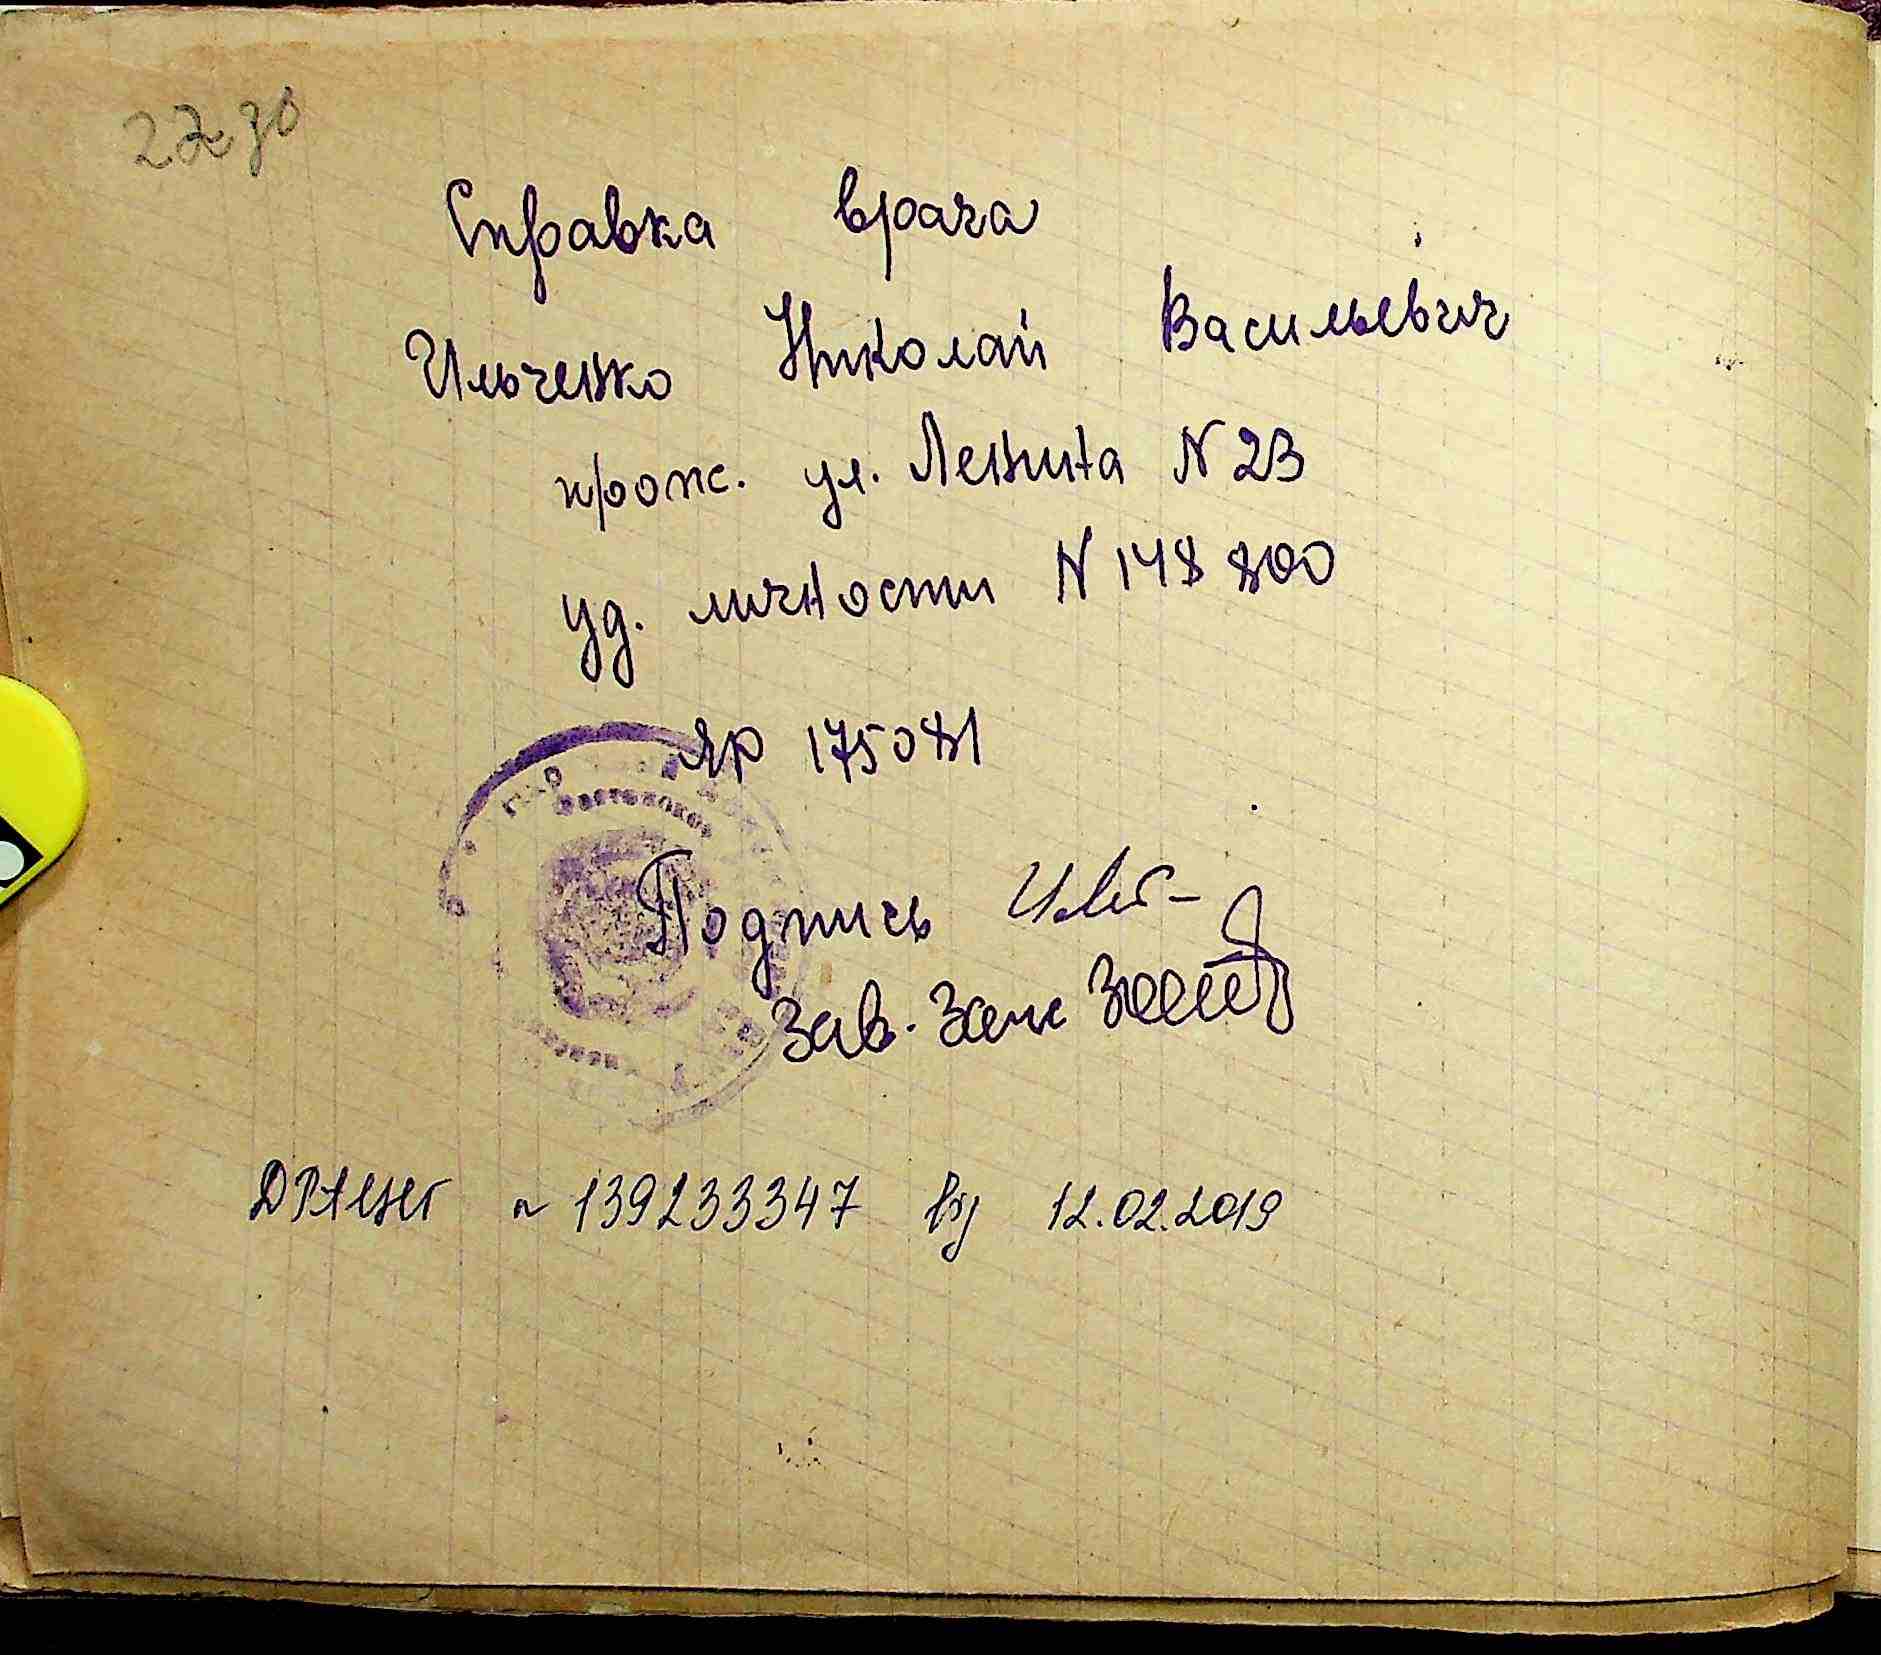 Справка врача
Ильченко Николай Васильевич
прож. ул. Ленина N 23
уд. личности N 148 800
ЯР 175081
Подпись
Зав. Загс
N 139233347 від 12.02.2019